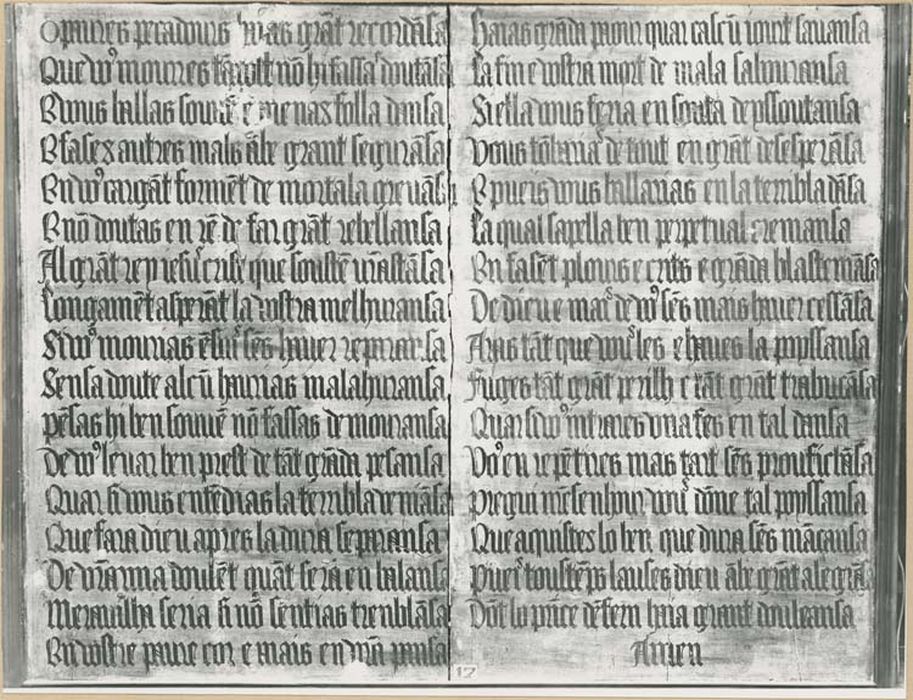 O paures pecadours haias grāt recordāsa
Que voꝰ moures tātost nō hi fassa doutāsa
E vous ballas souvēt e menas folla dansa
E fases autres mals ābe grant segurāsa
En voꝰ cargāt formēt de mortala grevāsa
E nō doutas en rē de far grāt rebellansa
Al grāt rey ieſu crist que soustē vr̄astāsa
Longamēt asperāt la vostra melhuransa
Si voꝰ mourias sēs haver reparansa
Sensa doute alcū haurias malahuransa
pēsas hi ben souvē nō fassas demouransa
De voꝰ levar ben prest de tāt grāda pesansa
Quar si vous entēdias la terribla demāsa
Que fara dieu apres la dura separansa
De vr̄a arma doulēt quāt sera en balansa
Meravilha seria si nō sentias trenblāsa
En vostre paure cor e mais en vr̄a pansa
Haias grāda paour quar calcū iourt savansa
La fin e vostra mort de mala sabouransa
Si ella vous feria en sorta depssoutansa
Vous tōbaria de tout en grāt desesperāsa
E pueis vous ballarias en la terribla dāsa
La qual sapella ben perpetual cremansa
En fasēt plours e crits e grāda blastemāsa
De dieu e mai de voꝰ sēs mais haver cessāsa
Aras tāt que vous les e haves la poyssansa
Fuges tāt grāt perilh e tāt grāt trabucāsa
Quar si voꝰ intraves una fes en tal dansa
Voꝰ en repētires mas tart sēs proufictāsa
Pregui mesenhour vous dōne tal poyssansa
Que aquistes lo ben que dura sēs mācansa
Pueis toustēps lauses dieu ābe grāt alegrāsa
Dōt lo prīce dēfern haia grant douleansa
Amen
17